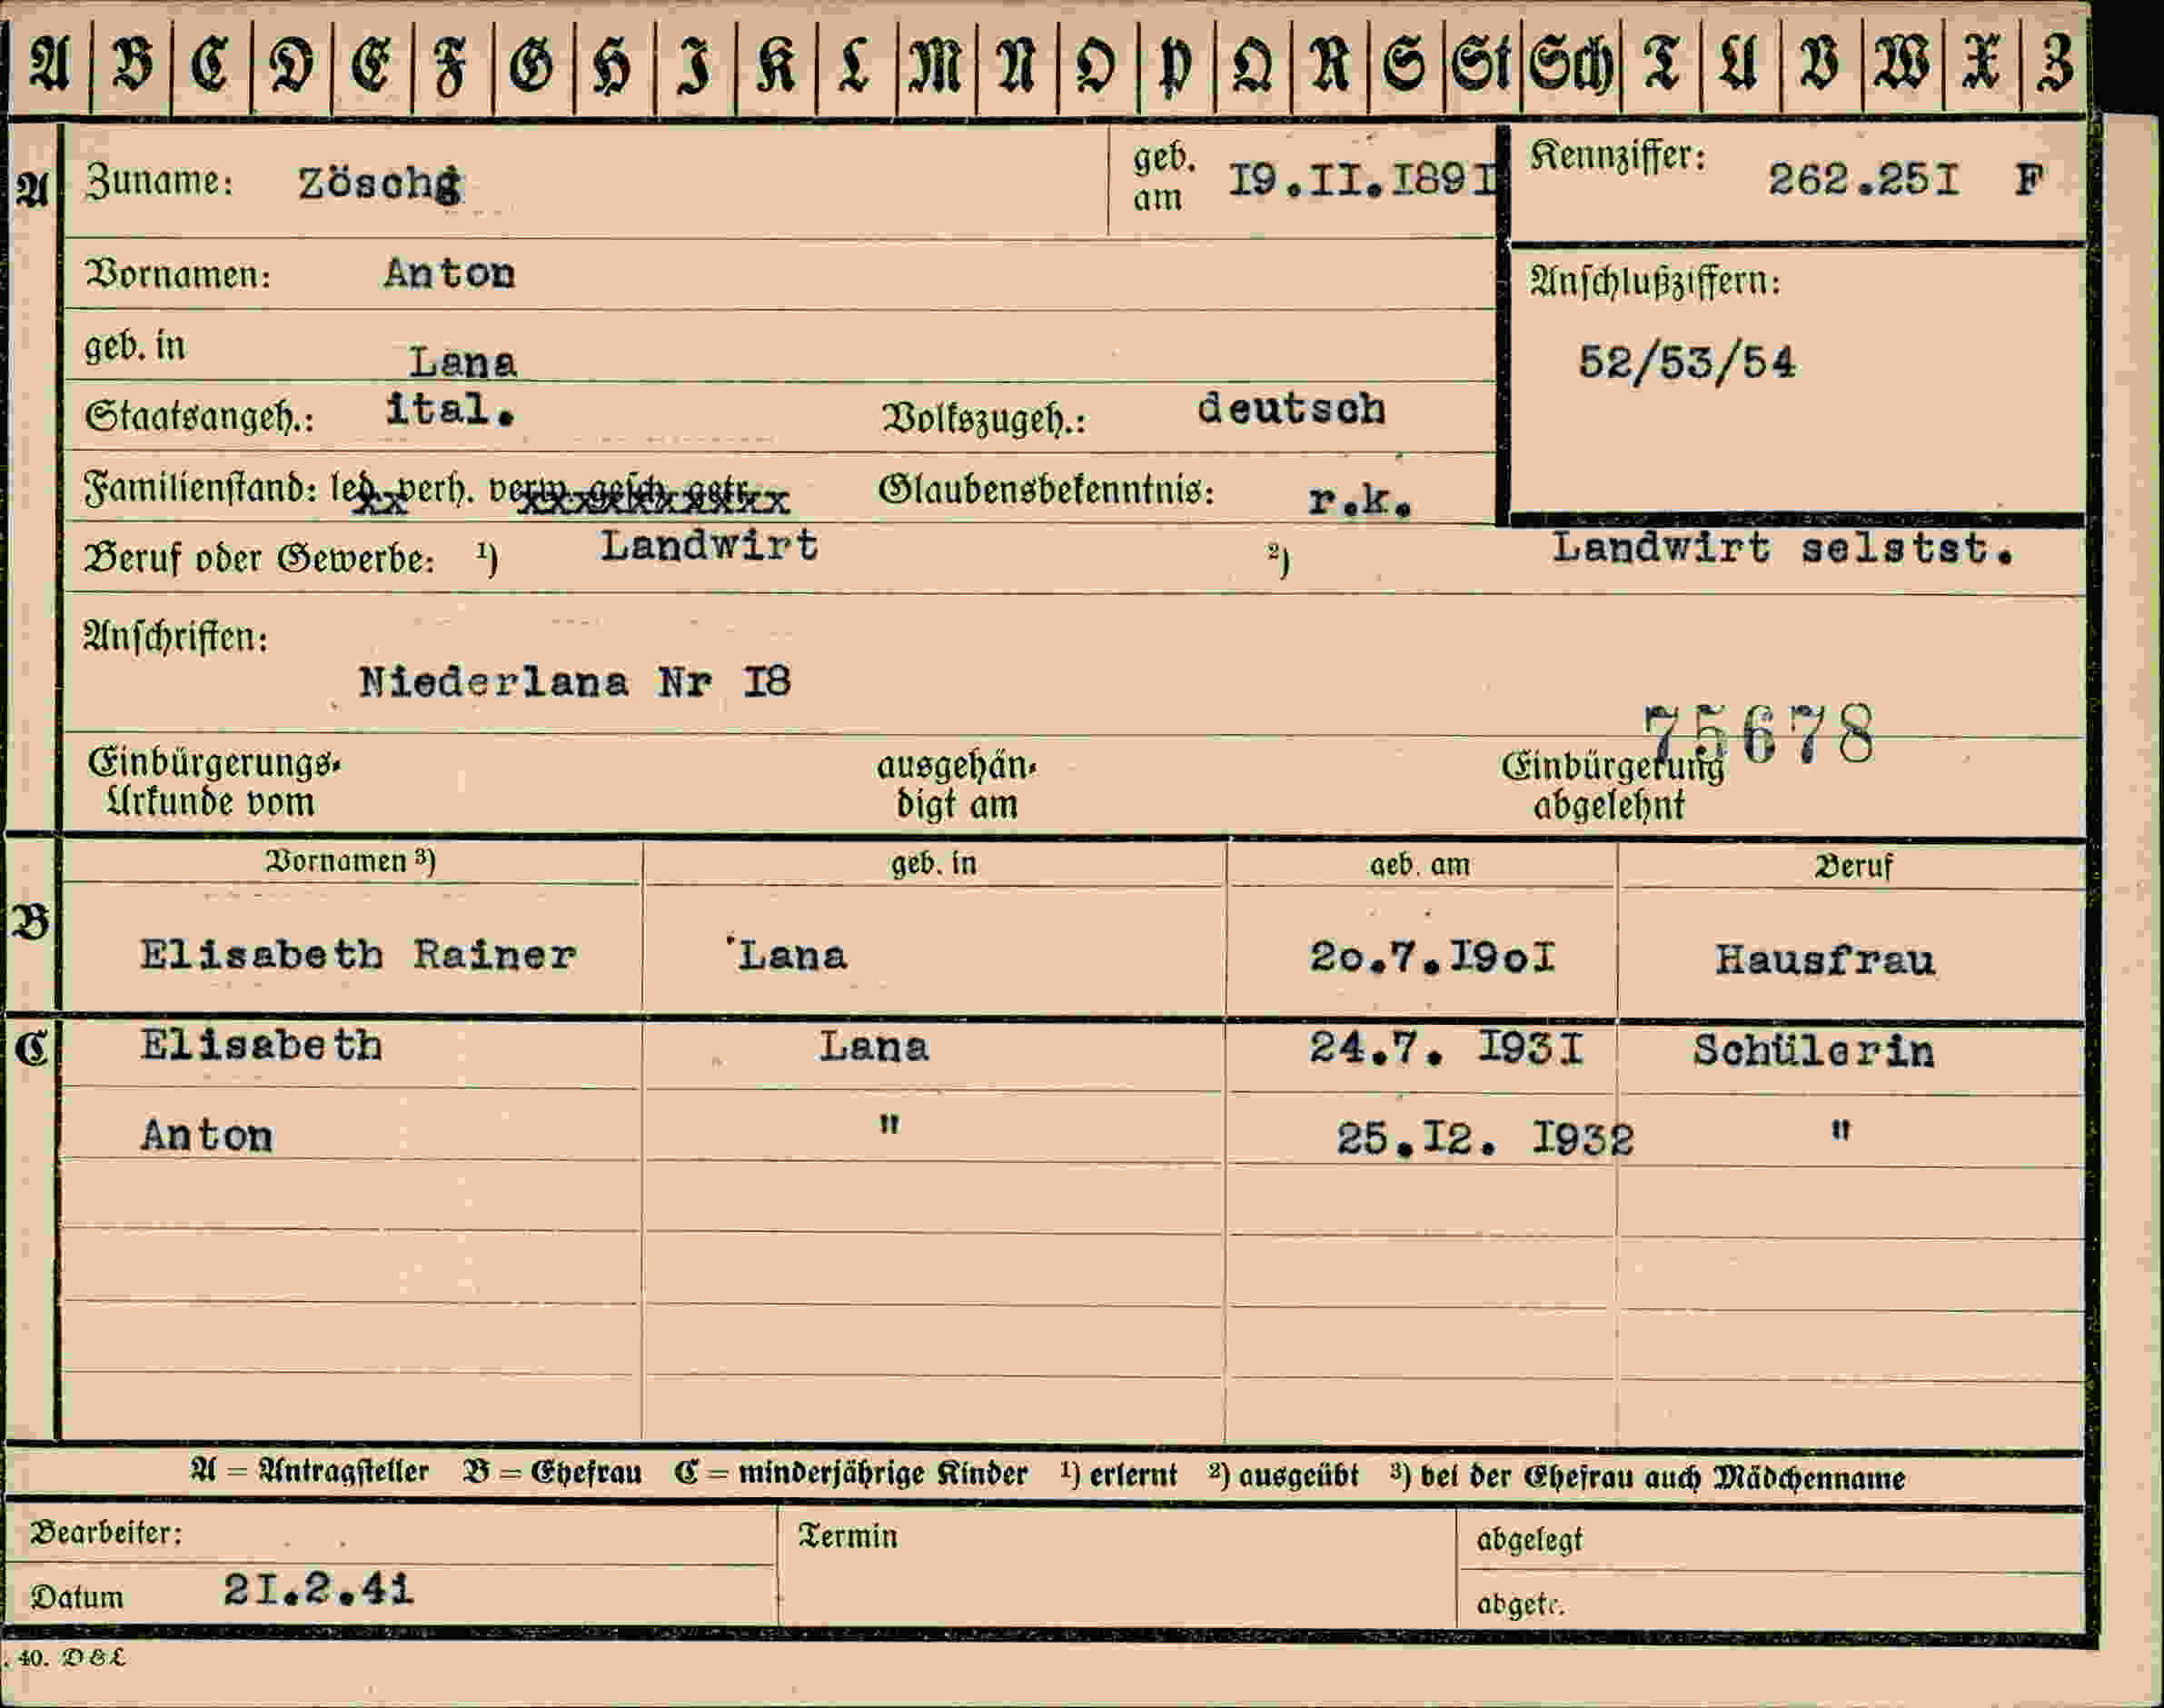 A B C D E F G H I K L M N O P Q R S St Sch T U V W X Z
A Zuname: Zöschg geb. am I9.II.I89I Kennziffer: 262.25I F
Vornamen: Anton Anschlußziffern:
geb. in Lana 52/53/54
Staatsangeh.: ital. Volkszugeh.: deutsch
Familienstand: led. verh. verw. gesch. getr. Glaubensbekenntnis: r.k.
Beruf oder Gewerbe: 1) Landwirt 2) Landwirt selstst.
Anschriften:
Niederlana Nr I8
75678
Einbürgerungs- ausgehän- Einbürgerung
Urkunde vom digt am abgelehnt
Vornamen 3) geb. in geb. am Beruf
B Elisabeth Rainer Lana 2o.7.I9oI Hausfrau
C Elisabeth Lana 24.7. I93I Schülerin
Anton " 25.I2. I932 "
A = Antragsteller B = Ehefrau C = minderjährige Kinder 1) erlernt 2) ausgeübt 3) bei der Ehefrau auch Mädchenname
Bearbeiter: Termin abgelegt
Datum 2I.2.41 abgetr.
. 40. D & L